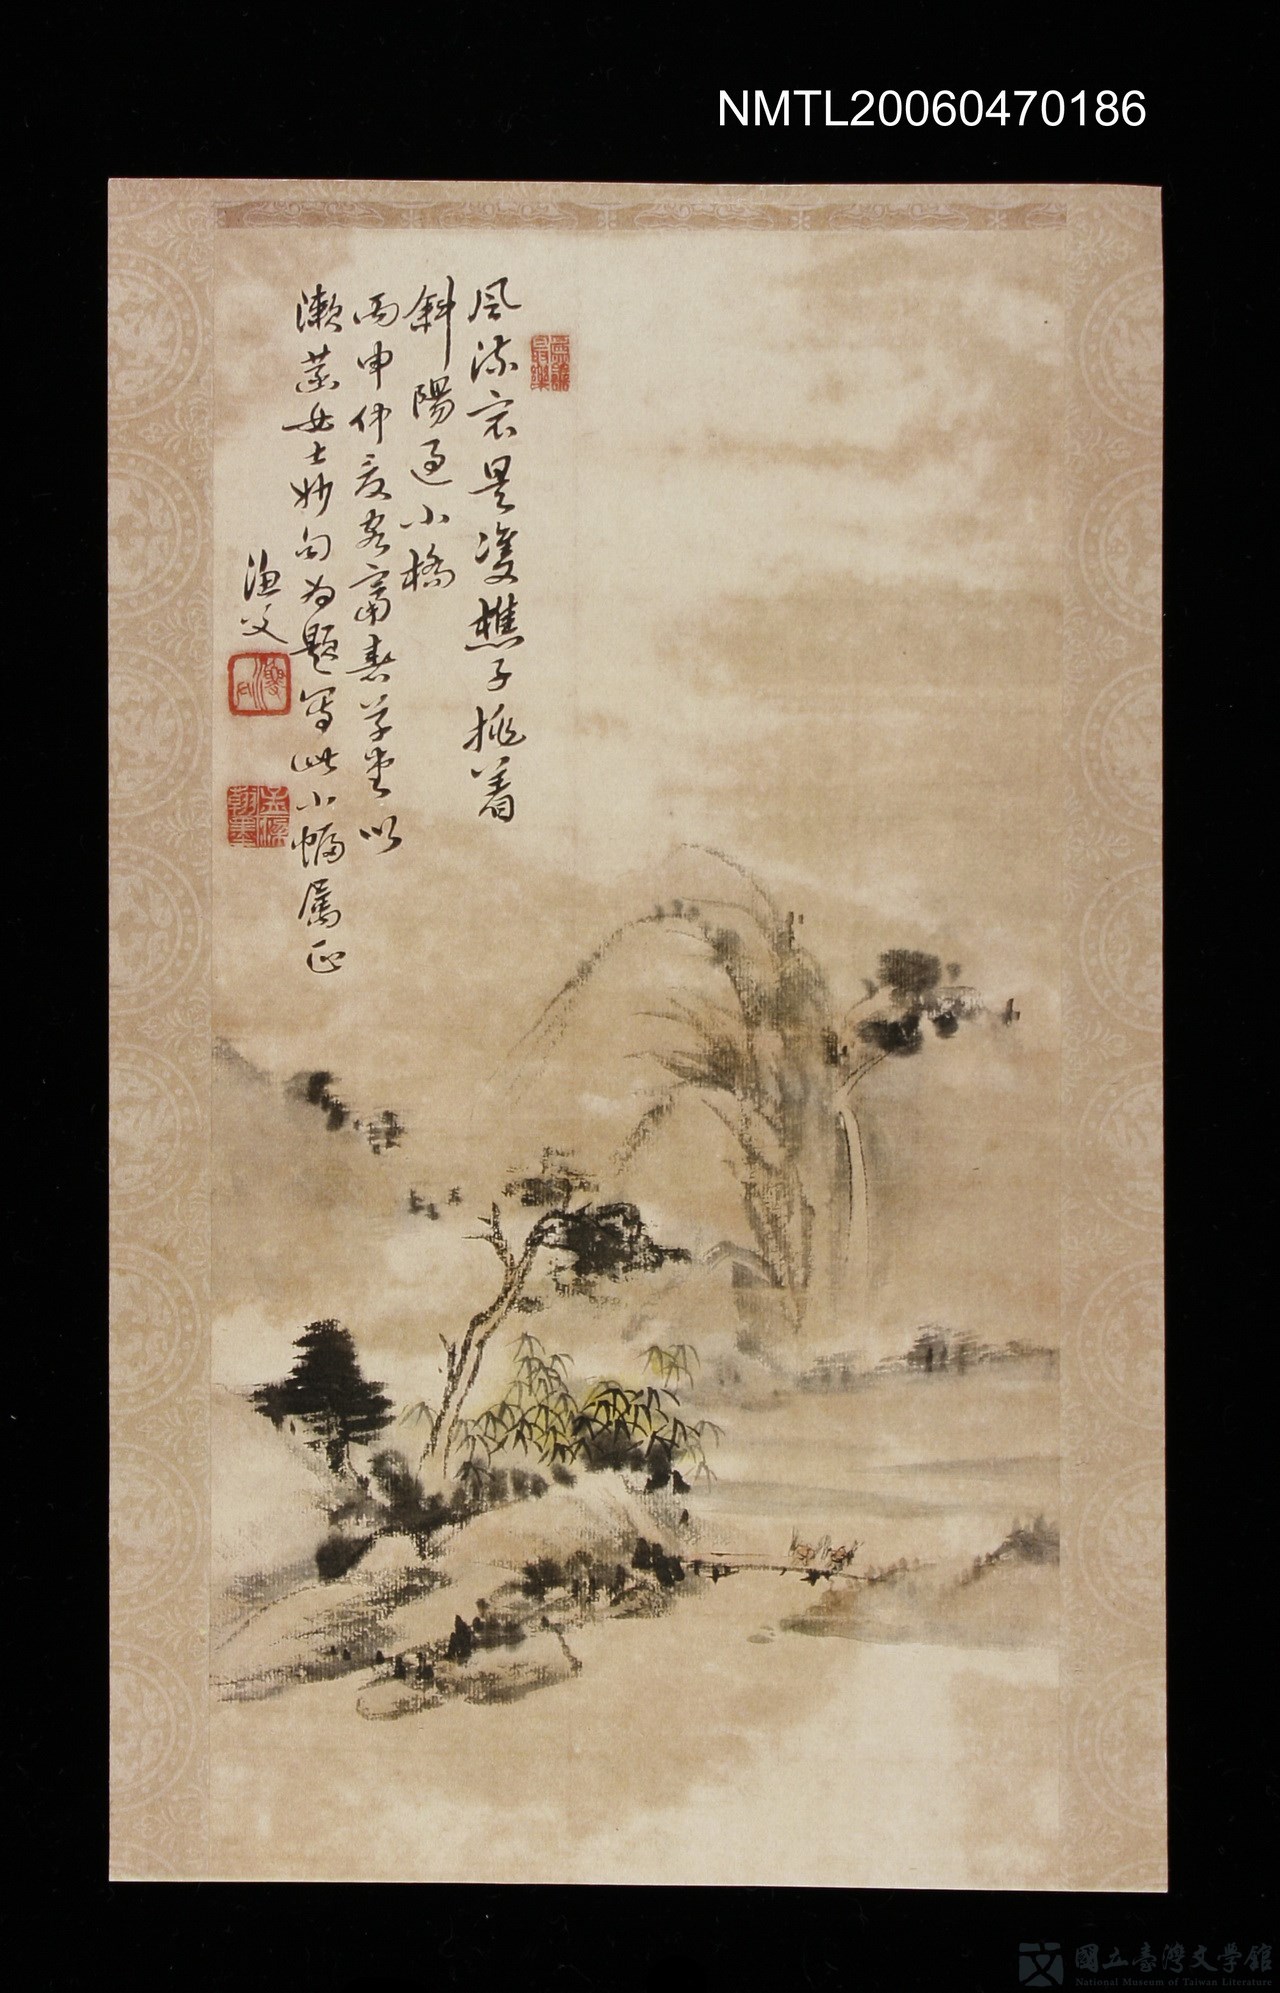 NMTL20060470186
風流最是雙樵子挑着
斜陽過小橋
丙申仲夏客富春草堂以
漱菡女士妙句為題寫此小幅屬正
漁父
國立臺灣文學館
National Museum of Taiwan Literature